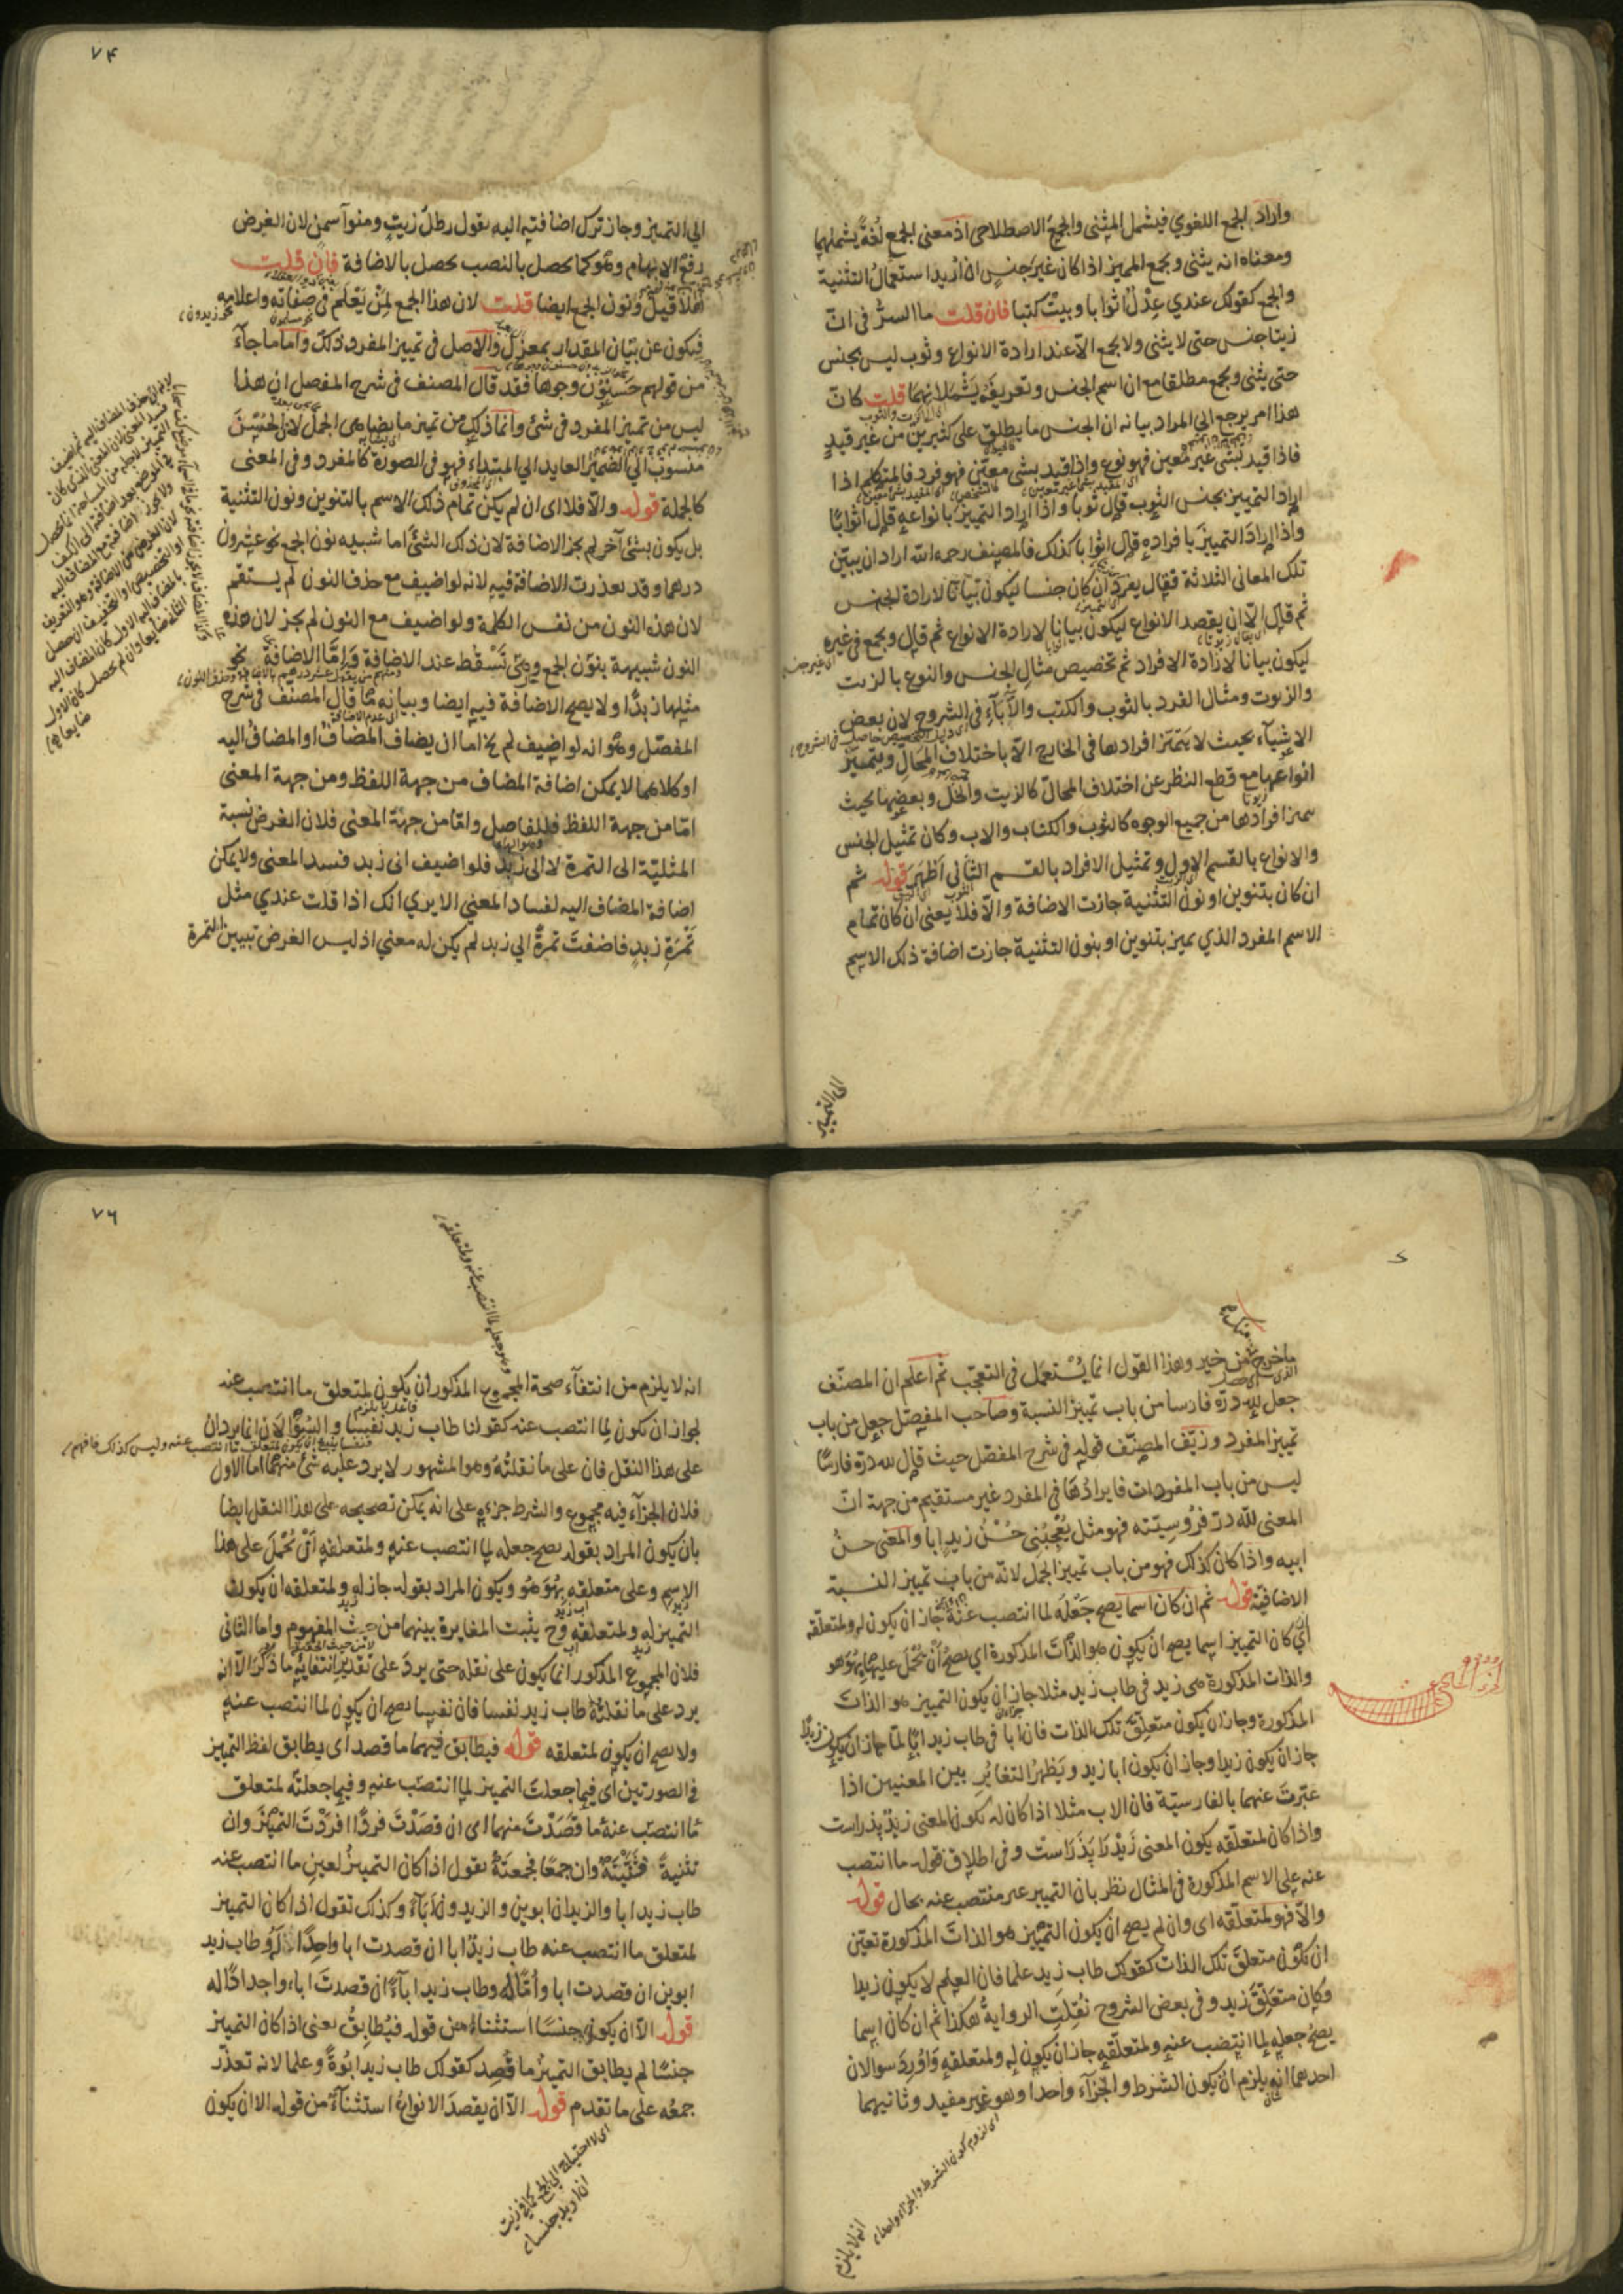 واراد بالجمع اللغوي فيشمل المثنى والجمع الاصطلاحى اذ معنى الجمع لغة يشملهما
ومعناه انه يثنى ويجمع المميز اذا كان غير جنس ان اريد استعمال التثنية
والجمع كقولك عندي عدل اثوابا وبيت كتبا فان قلت ما السر فى ان
زيتا جنس حتى لا يثنى ولا يجمع الا عند ارادة الانواع وثوب ليس بجنس
حتى يثنى ويجمع مطلقا مع ان اسم الجنس وتعريفه يشملانهما قلت كان
هذا امر يرجع الى المراد بيانه ان الجنس ما يطلق على كثيرين من غير قيد
فاذا قيد بشئ غير معين فهو نوع واذا قيد بشئ معين فهو فرد فالمتكلم اذا
اراد التمييز بجنس الثوب قال ثوبا واذا اراد التمييز بانواعه قال اثوابا
واذا اراد التمييز بافراده قال اثوابا كذلك فالمصنف رحمه الله اراد ان يبين
تلك المعانى الثلاثة فقال يفرد ان كان جنسا ليكون بيانا لارادة الجنس
ثم قال الا ان يقصد الانواع ليكون بيانا لارادة الانواع ثم قال ويجمع فى غيره
ليكون بيانا لارادة الافراد ثم تخصيص مثال الجنس والنوع بالزيت
والزيوت ومثال الفرد بالثوب والكتب والاباء فى الشروح لان بعض
الاشياء بحيث لا يتميز افرادها فى الخارج الا باختلاف المحال ويتميز
انواعها مع قطع النظر عن اختلاف المحال كالزيت والخل وبعضها بحيث
يتميز افرادها من جميع الوجوه كالثوب والكتاب والاب وكان تمثيل الجنس
والانواع بالقسم الاول وتمثيل الافراد بالقسم الثانى اظهر قوله ثم
ان كان بتنوين او نون التثنية جازت الاضافة والا فلا يعنى ان كان تمام
الاسم المفرد الذي يميز بتنوين او بنون التثنية جازت اضافة ذلك الاسم
الى التمييز
٧۴
الى التمييز وجاز ترك اضافته اليه تقول رطل زيت ومنوا سمن لان الغرض
رفع الابهام وهو كما يحصل بالنصب يحصل بالاضافة فان قلت
هلا قيل ونون الجمع ايضا قلت لان هذا الجمع لمن يعلم فى صفاته واعلامه
فيكون عن بيان المقدار بمعزل والاصل فى تمييز المفرد ذلك واما ما جاء
من قولهم حسنون وجوها فقد قال المصنف فى شرح المفصل ان هذا
ليس من تمييز المفرد فى شئ وانما ذلك من تميز ما يضاهى الجمل لان الحسن
منسوب الى الضمير العايد الى المبتداء فهو فى الصورة كالمفرد وفى المعنى
كالجملة قوله والا فلا اى ان لم يكن تمام ذلك الاسم بالتنوين ونون التثنية
بل يكون بشئ آخر لم يجز الاضافة لان ذلك الشئ اما شبيه نون الجمع نحو عشرون
درهما وقد تعذرت الاضافة فيه لانه لو اضيف مع حذف النون لم يستقم
لان هذه النون من نفس الكلمة ولو اضيف مع النون لم يجز لان هذه
النون شبيهة بنون الجمع وهى تسقط عند الاضافة واما الاضافة نحو
مثلها زبدا ولا يصح الاضافة فيه ايضا وبيانه ما قال المصنف فى شرح
المفصل وهو انه لو اضيف لم يخ اما ان يضاف المضاف او المضاف اليه
او كلاهما لا يمكن اضافة المضاف من جهة اللفظ ومن جهة المعنى
اما من جهة اللفظ فللفاصل واما من جهة المعنى فلان الغرض نسبة
المثلية الى التمرة لا الى زبد فلو اضيف الى زبد فسد المعنى ولا يمكن
اضافة المضاف اليه لفساد المعنى الا يرى انك اذا قلت عندي مثل
تمرة زبد فاضفت تمرة الى زبد لم يكن له معنى اذ ليس الغرض تبيين التمرة
ما خرج من خير وهذا القول انما يستعمل فى التعجب ثم اعلم ان المصنف
جعل لله دره فارسا من باب تمييز النسبة وصاحب المفصل جعل من باب
تمييز المفرد وزيف المصنف قوله فى شرح المفصل حيث قال لله دره فارسا
ليس من باب المفردات فايرادها فى المفرد غير مستقيم من جهة ان
المعنى لله در فروسيته فهو مثل يعجبنى حسن زيد ابا والمعنى حسن
ابيه واذا كان كذلك فهو من باب تمييز الجمل لانه من باب تمييز النسبة
الاضافية قوله ثم ان كان اسما يصح جعله لما انتصب عنه جاز ان يكون له ولمتعلقه
اى كان التمييز اسما يصح ان يكون هو الذات المذكورة اى يصح ان يحمل عليها بهو هو
والذات المذكورة هى زيد فى طاب زيد مثلا جاز ان يكون التمييز هو الذات
المذكورة وجاز ان يكون متعلق تلك الذات فان ابا فى طاب زيد ابا لما جاز ان يكون زيدا
جاز ان يكون زيدا وجاز ان يكون ابا زيد ويظهر التغاير بين المعنيين اذا
عبرت عنهما بالفارسية فان الاب مثلا اذا كان له يكون المعنى زيد پدر است
واذا كان لمتعلقه يكون المعنى زيد را پدر است وفى اطلاق قوله ما انتصب
عنه على الاسم المذكورة فى المثال نظر بان التمييز غير منتصب عنه بحال قوله
والا فهو لمتعلقه اى وان لم يصح ان يكون التمييز هو الذات المذكورة تعين
ان يكون متعلق تلك الذات كقولك طاب زيد علما فان العلم لا يكون زيدا
وكان متعلق زيد وفى بعض الشروح نقلت الرواية هكذا ثم ان كان اسما
يصح جعله لما انتصب عنه ولمتعلقه جاز ان يكون له ولمتعلقه واورد سوالان
احدهما انه يلزم ان يكون الشرط والجزاء واحدا وهو غير مفيد وثانيهما
اى لزوم كون الشرط والجزاء واحدا
انه لا يلزم
٧٦
وهو جعله لما انتصب عنه ولمتعلقه
انه لا يلزم من انتفاء صحة المجموع المذكور ان يكون لمتعلق ما انتصب عنه
لجواز ان يكون لما انتصب عنه كقولنا طاب زيد نفسا والسؤالان انما يردان
على هذا النقل فان على ما نقلته وهو المشهور لا يرد عليه شئ منهما اما الاول
فلان الجزاء فيه مجموع والشرط جزءه على انه يمكن تصحيحه على هذا النقل ايضا
بان يكون المراد بقوله يصح جعله لما انتصب عنه ولمتعلقه ان يحمل على هذا
الاسم وعلى متعلقه بهو هو ويكون المراد بقوله جاز له ولمتعلقه ان يكون
التمييز له ولمتعلقه وح يثبت المغايرة بينهما من حيث المفهوم واما الثانى
فلان المجموع المذكور انما يكون على نقله حتى يرد على تقدير انتفائه ما ذكر الا انه
يرد على ما نقلته طاب زيد نفسا فان نفسا يصح ان يكون لما انتصب عنه
ولا يصح ان يكون لمتعلقه قوله فيطابق فيهما ما قصد اى يطابق لفظ التمييز
فى الصورتين اى فيما جعلت التمييز لما انتصب عنه وفيما جعلته لمتعلق
ما انتصب عنه ما قصدت منهما اى ان قصدت فردا افردت التمييز وان
تثنية فتثنيته وان جمعا فجمعته تقول اذا كان التمييز لعين ما انتصب عنه
طاب زيد ابا والزيدان ابوين والزيدون آباء وكذلك تقول اذا كان التمييز
لمتعلق ما انتصب عنه طاب زيد ابا ان قصدت ابا واحدا له وطاب زيد
ابوين ان قصدت ابا واما له وطاب زيد اباء ان قصدت اباء واجدادا له
قوله الا ان يكون جنسا استثناء من قوله فيطابق يعنى اذا كان التمييز
جنسا لم يطابق التمييز ما قصد كقولك طاب زيد ابوة وعلما لانه تعذر
جمعه على ما تقدم قوله الا ان يقصد الانواع استثناء من قوله الا ان يكون
اى لا احتياج الى الجمع كما فى زيت
ان اريد جنسا